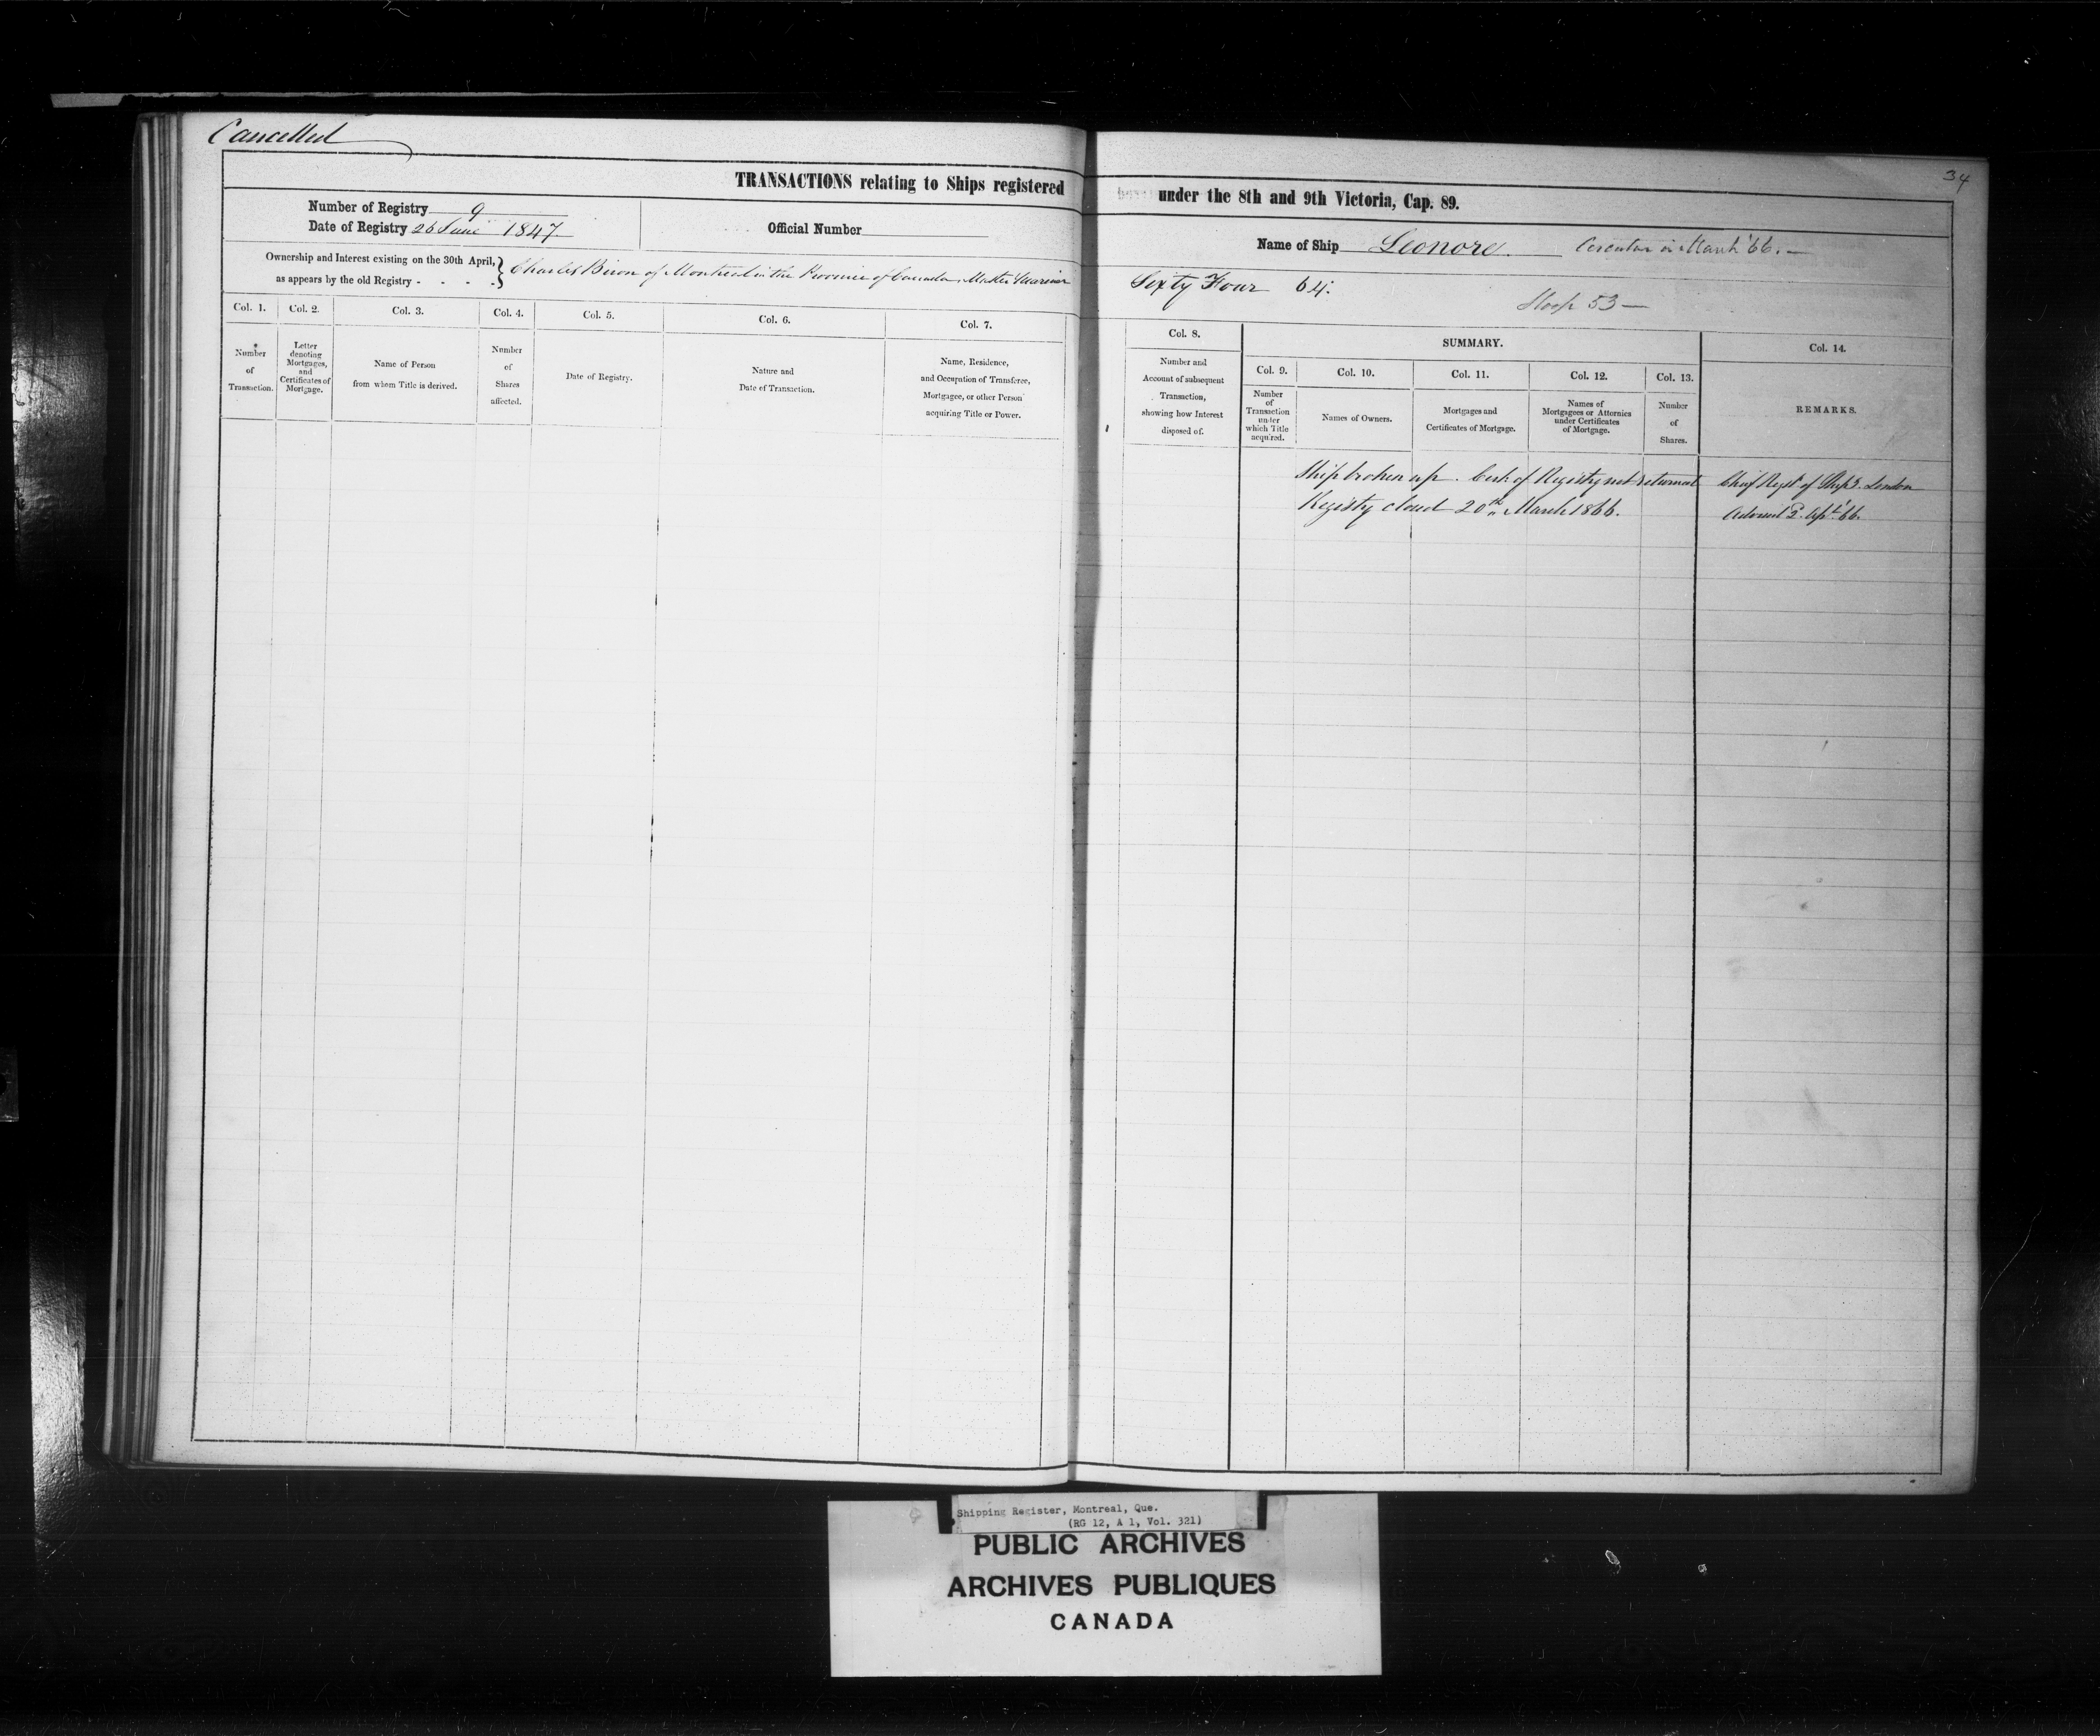 Cancelled
34
TRANSACTIONS relating to Ships registered under the 8th and 9th Victoria, Cap. 89.
Number of Registry 9
Date of Registry 26 June 1847
Official Number
Name of Ship Leonore. in March '66. —
Ownership and Interest existing on the 30th April,
as appears by the old Registry - - - -
Charles Biron of Montreal in the Province of Canada Master Mariner
Sixty Four 64:
Sloop 53 —
Col. 1.
Number
of
Transaction.
Col. 2.
Letter
denoting
Mortgages,
and
Certificates of
Mortgage.
Col. 3.
Name of Person
from whom Title is derived.
Col. 4.
Number
of
Shares
affected.
Col. 5.
Date of Registry.
Col. 6.
Nature and
Date of Transaction.
Col. 7.
Name, Residence,
and Occupation of Transferee,
Mortgagee, or other Person
acquiring Title or Power.
Col. 8.
Number and
Account of subsequent
Transaction,
showing how Interest
disposed of.
SUMMARY.
Col. 9.
Number
of
Transaction
under
which Title
acquired.
Col. 10.
Names of Owners.
Col. 11.
Mortgages and
Certificates of Mortgage.
Col. 12.
Names of
Mortgagees or Attornies
under Certificates
of Mortgage.
Col. 13.
Number
of
Shares.
Col. 14.
REMARKS.
Ship broken up. Cert of Registry not returned
Registry closed 20th March 1866.
Chief Regr of Ships. London
Advised 2 Apl '66.
Shipping Register, Montreal, Que.
(RG 12, A 1, Vol. 321)
PUBLIC ARCHIVES
ARCHIVES PUBLIQUES
CANADA